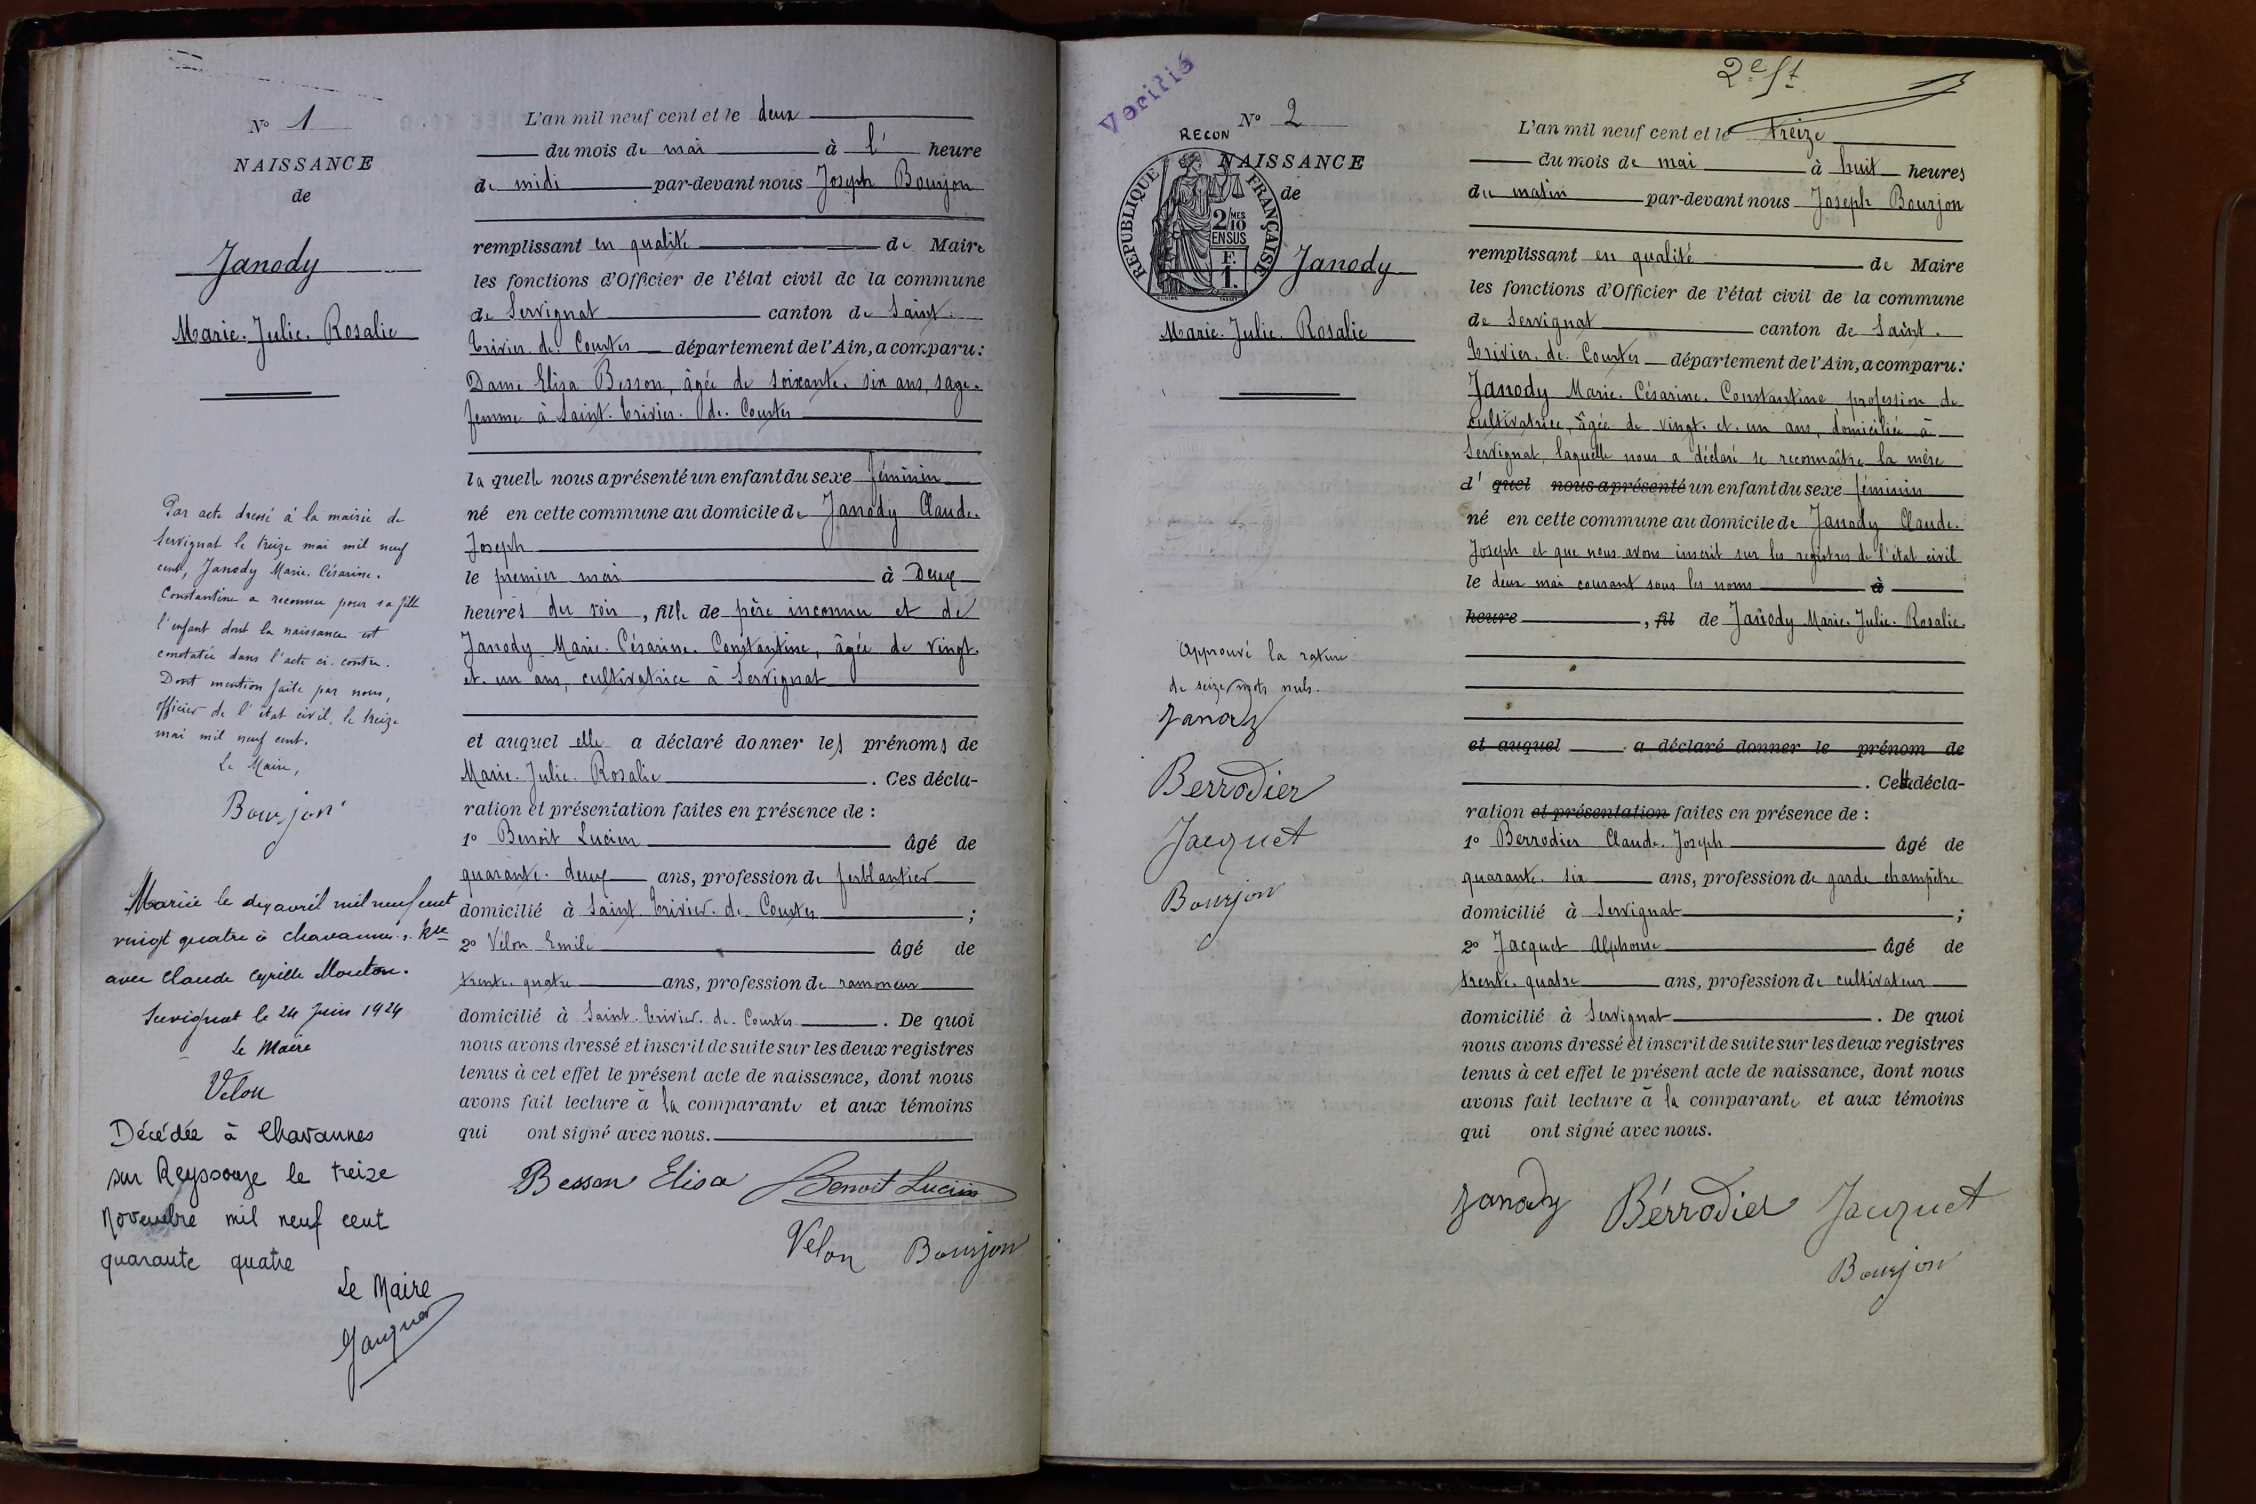 N° 1
NAISSANCE
de
Janody
Marie. Julie. Rosalie
Par acte dressé à la mairie de
Servignat le treize mai mil neuf
cent, Janody Marie. Césarine.
Constantine a reconnu pour sa fille
l'enfant dont la naissance est
constatée dans l'acte ci-contre.
Dont mention faite par nous,
officier de l'état civil, le treize
mai mil neuf cent.
Le Maire,
Bourjon
Mariée le dix avril mil neuf cent
vingt quatre à Chavannes s. Rsze
avec Claude Cyrille Mouton.
Servignat le 24 Juin 1924
Le Maire
Velon
Décédée à Chavannes
sur Reyssouze le treize
Novembre mil neuf cent
quarante quatre
Le Maire
L'an mil neuf cent et le deux
du mois de mai à l' heure
de midi par-devant nous Joseph Bourjon
remplissant en qualité de Maire
les fonctions d'Officier de l'état civil de la commune
de Servignat canton de Saint.
Trivier. de. Courtes département de l'Ain, a comparu:
Dame Elisa Besson, âgée de soixante. six ans, sage.
femme à Saint. Trivier. de. Courtes
la quelle nous a présenté un enfant du sexe féminin
né en cette commune au domicile de Janody Claude.
Joseph
le premier mai à Deux
heures du soir, fille de père inconnu et de
Janody Marie. Césarine. Constantine, âgée de vingt.
et. un ans, cultivatrice à Servignat
et auquel elle a déclaré donner les prénoms de
Marie. Julie. Rosalie. Ces décla-
ration et présentation faites en présence de :
1° Benoit Lucien âgé de
quarante. deux ans, profession de ferblantier
domicilié à Saint. Trivier. de. Courtes ;
2° Vélon Emile âgé de
trente. quatre ans, profession de ramoneur
domicilié à Saint. Trivier. de. Courtes. De quoi
nous avons dressé et inscrit de suite sur les deux registres
tenus à cet effet le présent acte de naissance, dont nous
avons fait lecture à la comparante et aux témoins
qui ont signé avec nous.
Besson Elisa Benoit Lucien
Velon Bourjon
Vérifié
N° 2
RECON
NAISSANCE
de
RÉPUBLIQUE FRANÇAISE
2/MES
10
EN SUS
F.
1.
Janody
Marie. Julie. Rosalie
Approuvé la rature
de seize mots nuls.
Janody
Berrodier
Jacquet
Bourjon
2e ft
L'an mil neuf cent et le treize
du mois de mai à huit heures
du matin par-devant nous Joseph Bourjon
remplissant en qualité de Maire
les fonctions d'Officier de l'état civil de la commune
de Servignat canton de Saint.
Trivier. de. Courtes département de l'Ain, a comparu:
Janody Marie. Césarine. Constantine, profession de
cultivatrice, âgée de vingt. et. un ans, domiciliée à
Servignat, laquelle nous a déclaré se reconnaître la mère
d' quel nous a présenté un enfant du sexe féminin
né en cette commune au domicile de Janody Claude.
Joseph et que nous avons inscrit sur les registres de l'état civil
le deux mai courant sous les noms à
heure, fil de Janody Marie. Julie. Rosalie.
et auquel a déclaré donner le prénom de
. Cette décla-
ration et présentation faites en présence de :
1° Berrodier Claude. Joseph âgé de
quarante. six ans, profession de garde champêtre
domicilié à Servignat ;
2° Jacquet Alphonse âgé de
trente. quatre ans, profession de cultivateur
domicilié à Servignat. De quoi
nous avons dressé et inscrit de suite sur les deux registres
tenus à cet effet le présent acte de naissance, dont nous
avons fait lecture à la comparante et aux témoins
qui ont signé avec nous.
Janody Bérrodier Jacquet
Bourjon